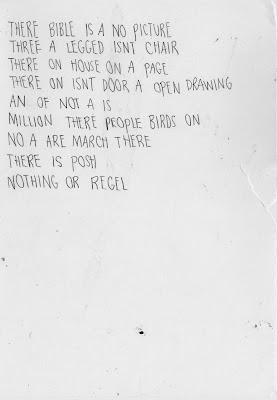 THERE BIBLE IS A NO PICTURE
THREE A LEGGED ISNT CHAIR
THERE ON HOUSE ON A PAGE
THERE ON ISNT DOOR A OPEN DRAWING
AN OF NOT A IS
MILLION THERE PEOPLE BIRDS ON
NO A ARE MARCH THERE
THERE IS POSH
NOTHING OR REGEL